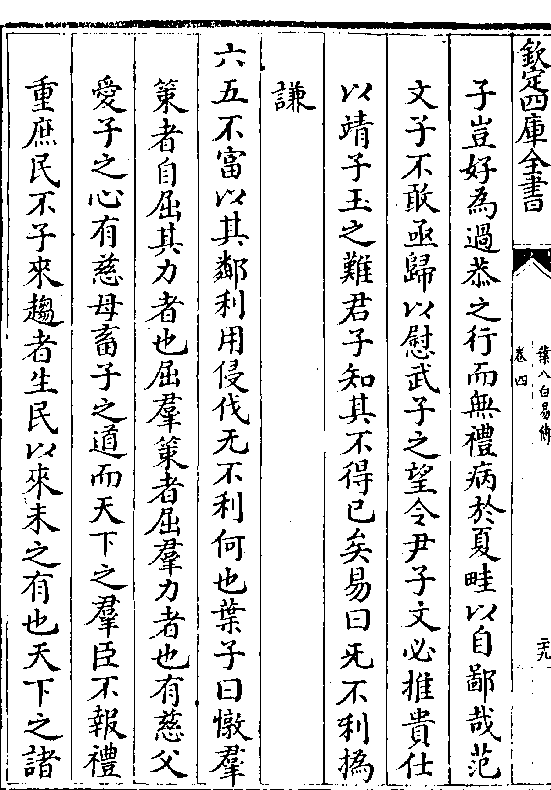 欽定四庫全書
葉八白易傳
卷四
二十九
子豈好為過恭之行而無禮病於夏畦以自鄙哉范
文子不敢亟歸以慰武子之望令尹子文必推貴仕
以靖子玉之難君子知其不得已矣易曰无不利撝
謙
六五不富以其鄰利用侵伐无不利何也葉子曰憞羣
策者自屈其力者也屈羣策者屈羣力者也有慈父
愛子之心有慈母畜子之道而天下之羣臣不報禮
重庶民不子來趨者生民以來未之有也天下之諸